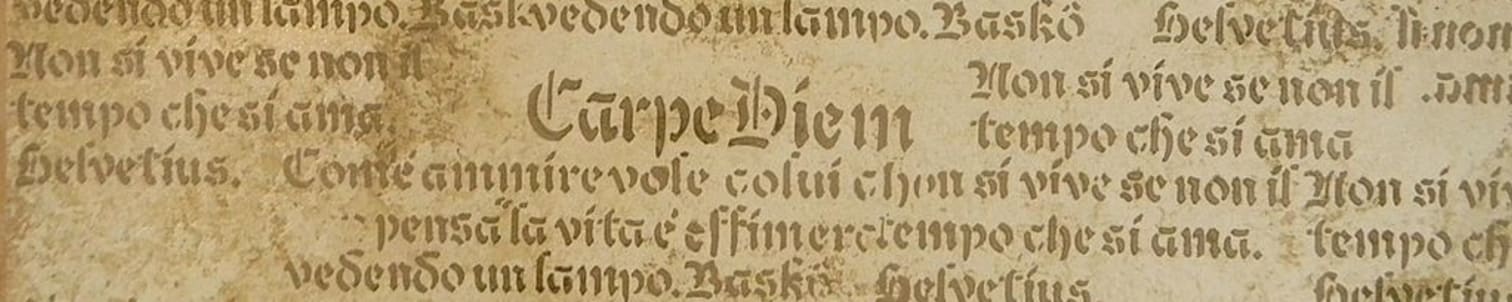 vedendo un lampo. Baskvedendo un lampo. Baskô Helvetius. li non
Non si vive se non il
tempo che si ama.
Carpe Diem
Non si vive se non il
tempo che si ama
Helvetius. Come ammirevole colui ch non si vive se non il Non si vi
pensa "la vita é effimera tempo che si ama. tempo ch
vedendo un lampo. Baskô Helvetius